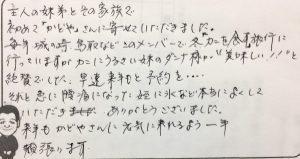 主人の妹弟とその家族で
初めて「かどや」さんに寄せていただきました。
毎年城の崎、鳥取などこのメンバーで、冬"カニを食べる旅行に
行っていますがカニにうるさい妹のダンナ様が"美味しい!!"と
絶賛でした。早速来年もと予約を…
それと急に腹痛になった姪に氷など本当によくして
いただき ありがとうございました。
来年もかどやさんに元気に来れるよう一年
頑張ります